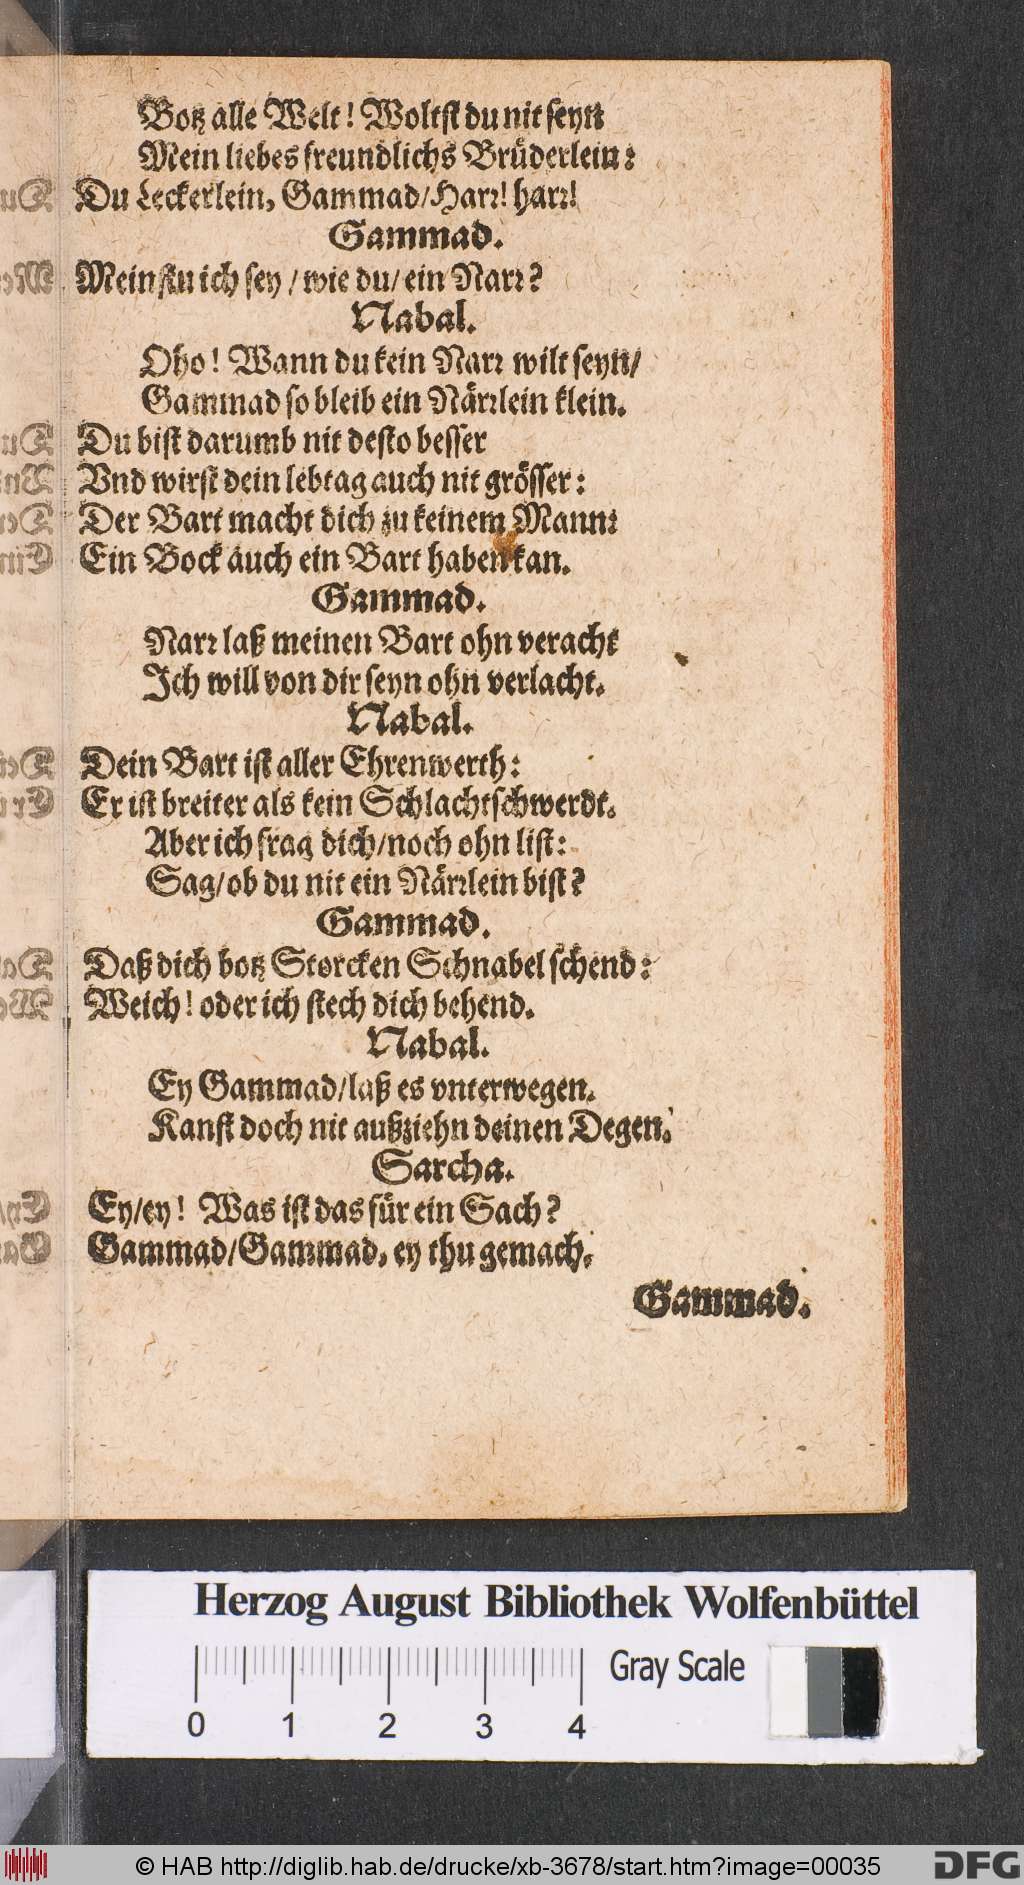 Botz alle Welt! Woltst du nit seyn
Mein liebes freundlichs Brüderlein:
Du Leckerlein, Gammad/Harr! harr!
Gammad.
Meinstu ich sey / wie du/ ein Narr?
Nabal.
Oho! Wann du kein Narr wilt seyn/
Gammad so bleib ein Närrlein klein.
Du bist darumb nit desto besser
Vnd wirst dein lebtag auch nit grösser:
Der Bart macht dich zu keinem Mann:
Ein Bock auch ein Bart haben kan.
Gammad.
Narr laß meinen Bart ohn veracht
Ich will von dir seyn ohn verlacht.
Nabal.
Dein Bart ist aller Ehrenwerth:
Er ist breiter als kein Schlachtschwerdt.
Aber ich frag dich/noch ohn list:
Sag/ob du nit ein Närrlein bist?
Gammad.
Daß dich botz Storcken Schnabel schend:
Weich! oder ich stech dich behend.
Nabal.
Ey Gammad/laß es vnterwegen.
Kanst doch nit außziehn deinen Degen.
Sarcha.
Ey/ey! Was ist das für ein Sach?
Gammad/Gammad, ey thu gemach.
Gammad.
Herzog August Bibliothek Wolfenbüttel
Gray Scale
0 1 2 3 4
© HAB http://diglib.hab.de/drucke/xb-3678/start.htm?image=00035
DFG